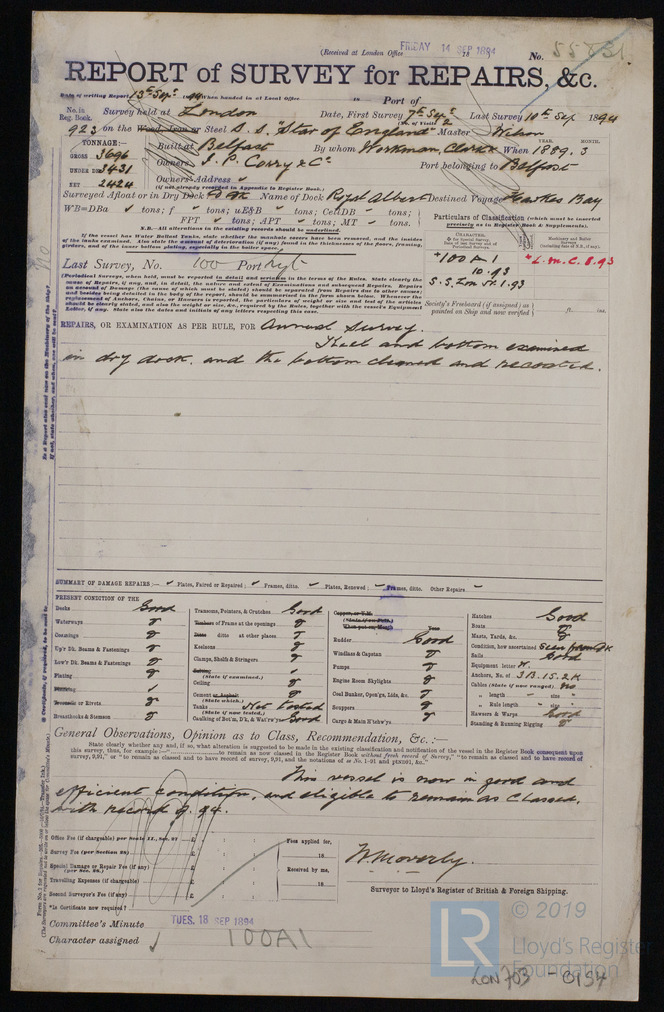 (Received at London Office FRIDAY 14 SEP 1894
No. 55831
REPORT of SURVEY for REPAIRS, &c.
Date of writing Report 13th Sep. 1894 When handed in at Local Office 18 Port of
No. in Reg. Book. Survey held at London Date, First Survey 7th Sept Last Survey 10th Sep 1894
(No. of Visits 2
923 on the Wood, Iron or Steel S.S. "Star of England" Master Wilson
TONNAGE:— Built at Belfast By whom Workman, Clark & When 1889. 3
YEAR. MONTH.
GROSS 3696
Owners J. P. Corry & Co Port belonging to Belfast
UNDER DK 3431
NET 2424
Owners' Address
(if not already recorded in Appendix to Register Book.)
Surveyed Afloat or in Dry Dock Name of Dock Royal Albert Destined Voyage Hawkes Bay
WB=DBa tons; f tons; uE&B tons; CellDB tons;
FPT tons; APT tons; MT tons.
N.B.—All alterations in the existing records should be underlined.
If the vessel has Water Ballast Tanks, state whether the manhole covers have been removed, and the insides of the tanks examined. Also state the amount of deterioration (if any) found in the thicknesses of the floors, framing, girders, and of the inner bottom plating, especially in the boiler space.
Particulars of Classification (which must be inserted precisely as in Register Book & Supplements).
CHARACTER.
Machinery and Boiler Surveys (including date of N.B., if any).
*100 A 1
10.93
S.S. Lon No 1. 93
*L.M.C. 8.93
Last Survey, No. 100 Port
(Periodical Surveys, when held, must be reported in detail and seriatim in the terms of the Rules. State clearly the cause of Repairs, if any, and, in detail, the nature and extent of Examinations and subsequent Repairs. Repairs on account of Damage (the cause of which must be stated) should be separated from Repairs due to other causes; and besides being detailed in the body of the report, should be summarized in the form shown below. Whenever the replacement of Anchors, Chains, or Hawsers is reported, the particulars of weight or size and test of the articles should be clearly stated, and also the weight or size, &c., required by the Rules, together with the vessel's Equipment Letter, if any. State also dates and initials of any letters respecting this case.
Society's Freeboard (if assigned) as painted on Ship and now verified ft. ins.
REPAIRS, OR EXAMINATION AS PER RULE, FOR Annual Survey.
Keel and bottom examined
in dry dock. and the bottom cleaned and recoated.
SUMMARY OF DAMAGE REPAIRS:— Plates, Faired or Repaired; Frames, ditto. Plates, Renewed; Frames, ditto. Other Repairs
PRESENT CONDITION OF THE
Decks Good
Waterways "
Coamings "
Up'r Dk. Beams & Fastenings "
Low'r Dk. Beams & Fastenings "
Plating "
Treenails or Rivets "
Breasthooks & Stemson "
Transoms, Pointers, & Crutches Good
Timbers of Frame at the openings "
Ditto ditto at other places "
Keelsons "
Clamps, Shelfs & Stringers "
Salting
(State if examined.)
Ceiling "
Cement or Asphalt "
(State which.)
Tanks Not tested
(State if now tested.)
Caulking of Bot'm, D'k, & Wat'rw'ys Good
Copper, or Y.M.
(State if on Felt.)
When put on, Month Year
Rudder Good
Windlass & Capstan "
Pumps "
Engine Room Skylights "
Coal Bunker, Open'gs, Lids, &c. "
Scuppers "
Cargo & Main H'tchw'ys "
Hatches Good
Boats "
Masts, Yards, &c. "
Condition, how ascertained Seen from Dk
Sails Good
Equipment letter
Anchors, No. of 3B. 1S. 2K
Cables (State if now ranged) No
" length
" Rule length
Hawsers & Warps Good
Standing & Running Rigging "
General Observations, Opinion as to Class, Recommendation, &c. :—
State clearly whether any, and if so, what alteration is suggested to be made in the existing classification and notification of the vessel in the Register Book consequent upon this survey, thus, for example:— to remain as now classed in the Register Book without fresh record of Survey," "to remain as classed and to have record of survey, 9,91," or "to remain as classed and to have record of survey, 9,91, and the notations of
This vessel is now in good and
efficient condition, and eligible to remain as classed.
with record 9. 94.
Office Fee (if chargeable) per Scale II., Sec. £
Survey Fee (per Section 28) £
Special Damage or Repair Fee (if any) £
(per Sec. 28.)
Travelling Expenses (if chargeable) £
Second Surveyor's Fee (if any) £
Fees applied for,
18
Received by me,
18
*Is Certificate now required?
W. Moverly.
Surveyor to Lloyd's Register of British & Foreign Shipping.
Committee's Minute TUES. 18 SEP 1894
Character assigned 100A1
LR
© 2019
Lloyd's Register
Foundation
LON 703 - 0154